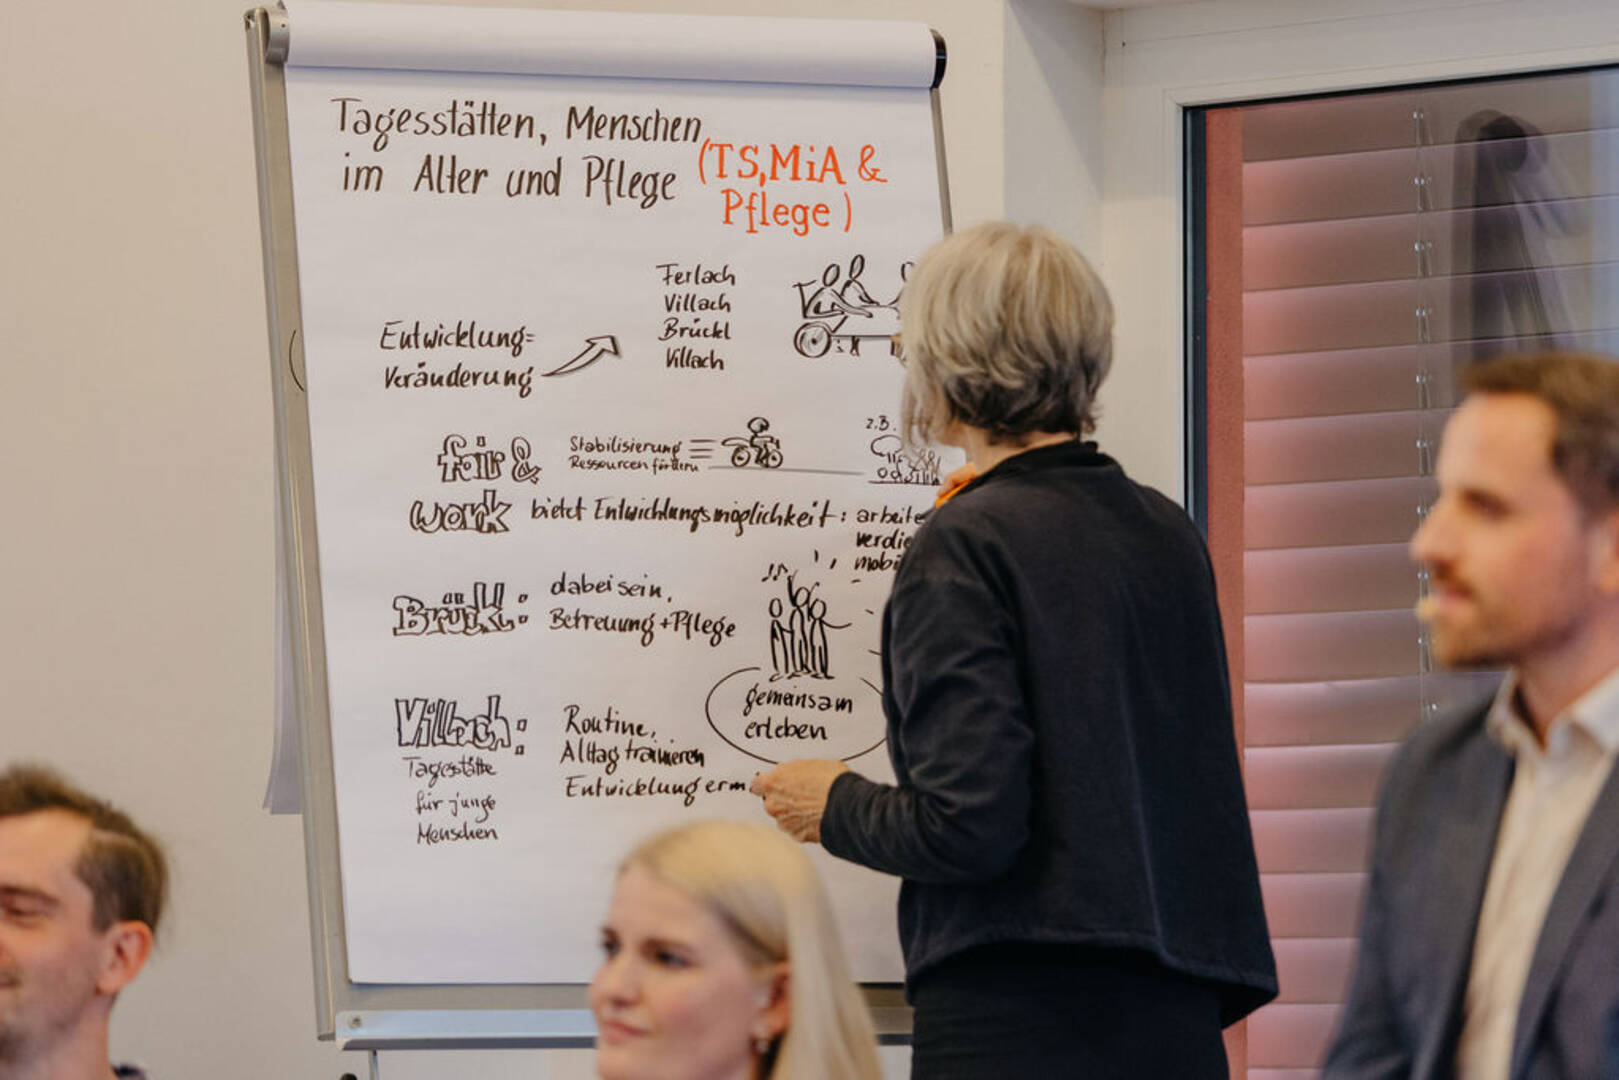 Tagesstätten, Menschen
im Alter und Pflege
(TS,MiA &
Pflege)
Ferlach
Villach
Brückl
Villach
Entwicklung=
Veränderung
fair &
work
Stabilisierung
Ressourcen fördern
z.B.
bietet Entwicklungsmöglichkeit: arbeite
verdie
mobi
Brückl:
dabei sein,
Betreuung + Pflege
gemeinsam
erleben
Villach:
Tagesstätte
für junge
Menschen
Routine,
Alltag trainieren
Entwicklung erm